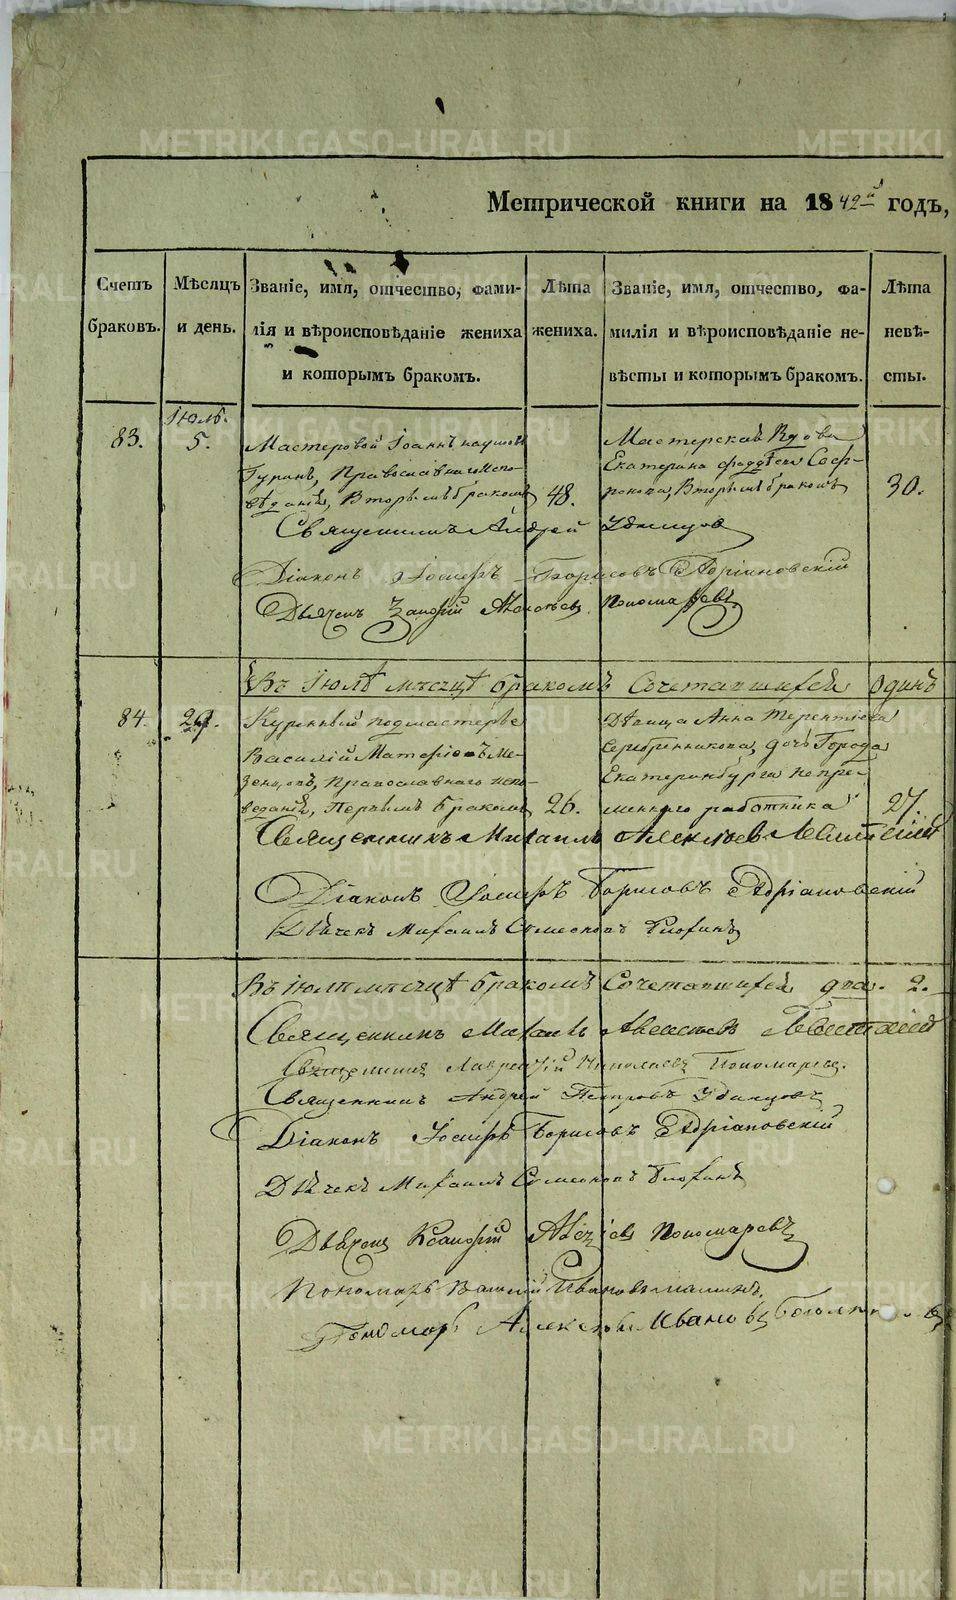 Метрической книги на 1842й годъ,
Счетъ браковъ.
Мѣсяцъ и день.
Званіе, имя, отчество, фами-
лія и вѣроисповѣданіе жениха
и которымъ бракомъ.
Лѣта
жениха.
Званіе, имя, отчество, фа-
милія и вѣроисповѣданіе не-
вѣсты и которымъ бракомъ.
Лѣта
невѣ-
сты.
83.
Іюль.
5.
Мастеровой Іоаннъ Наумовъ
Православнаго испо-
вѣданія, Вторымъ бракомъ
48.
Мастерская Вдова
Екатерина
Вторымъ бракомъ
30.
Священникъ Андрей Удинцов
Діаконъ Іосифъ Борисовъ Адріановскій
Дьячекъ Пономаревъ
Въ Іюлѣ мѣсяцѣ бракомъ Сочетавшихся Одинъ
84.
29.
Куренный подмастерье
Василій
Православнаго испо-
веданія, Первымъ бракомъ
26.
Дѣвица Анна Терентіева
Серебренникова, дочь Города
Екатеринбурга непре-
меннаго работника
27.
Священникъ Михаилъ Алексѣев
Діаконъ Іосифъ Борисовъ Адріановскій
Дьячекъ Михаилъ Симеоновъ
Въ Іюлѣ мѣсяцѣ бракомъ Сочетавшихся два. 2.
Священникъ Михаилъ Алексѣевъ
Священникъ Лаврентій Николаевъ Пономаревъ.
Священникъ Андрей Петровъ Удинцовъ
Діаконъ Іосифъ Борисовъ Адріановскій
Дьячекъ Михаилъ Симеоновъ
Дьячекъ Пономаревъ
Пономарь Василій Ивановъ
Пономарь Алексѣй Ивановъ
METRIKI.GASO-URAL.RU